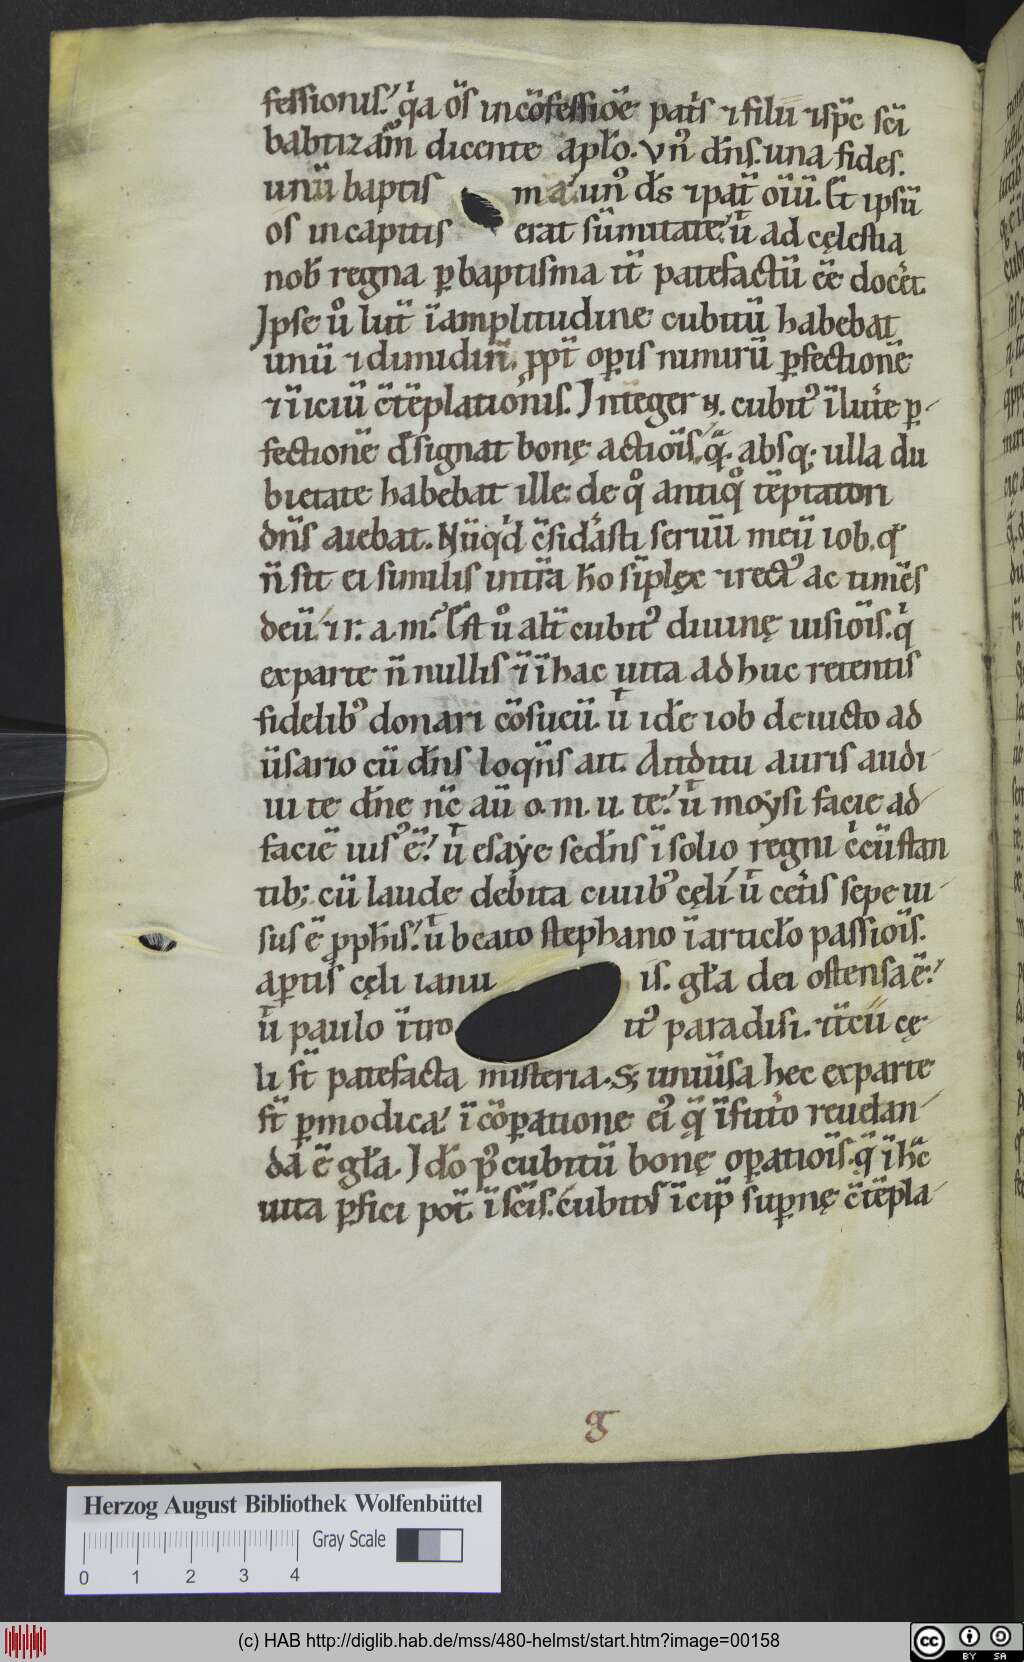 fessionis. q̇a ōs in cōfessiōe pat̓s ⁊ filii ⁊ sp̄c sc̄i
babtizām dicente apło. vn᷒ dn̄s. una fides.
unū baptis ma. un᷒ d̄s ⁊ pat̄ oīū. S̄t ipsū
os in capitis erat sūmitate. ū ad cęlestia
nob̄ regna ꝑ baptisma it̄ patefactū ēē docēt.
Ipse ů luīt ī amplitudine cubitū habebat
unū ⁊ dimidiū. ꝓpt̄ opis nimirū ꝑfectionē
⁊ īiciū c̄tēplationis. Integer cubit᷒ ī lut̓e ꝑ-
fectionē d̄signat bonę actiōis. q̄. absq; ulla du
bietate habebat ille de q̊ antiq̊ tēptatori
dn̄s aiebat. Nūqd c̄sid̓asti seruū meū iob. qd
n̄ sit ei similis int̄ra ho sīplęx ⁊ rect᷒ ac timēs
deū. ⁊ r. a. m. S̄t ů alt̄ cubit᷒ diuinę uisiōis. q̇
ex parte n̄ nullis ⁊ ī hac uita ad huc retentis
fidelib᷒ donari cōsueū. ū idē iob deuicto ad
ūsario cū dn̄s loqn̄s ait. Auditu auris audi-
ui te dn̄e nc̄ aū o. m. u. te. ū moẏsi facie ad
faciē uis᷒ ē. ū esaẏe sedn̄s ī solio regni c̓cūstan
tib; cū laude debita ciuib᷒ cęli. ū cet̓is sepe ui-
sus ē ꝓph̄is. ū beato stephano ī articlo passiōis.
aptis cęli ianu is. gła dei ostensa ē.
ū paulo ītro it᷒ paradisi. ⁊ t̄cū cę-
li s̄t patefacta misteria. S; uniūsa hec ex parte
s̄t ꝑmodica. ī cōparatione ei᷒ q̄ ī fut̓o reuelan-
da ē gła. Ido p᷒ cubitū bonę opatiōis. q̄ ī hc̄
uita ꝑfici pot̄. ī sc̄is. cubitus īcip̄ supnę c̄tēpla-
g
Herzog August Bibliothek Wolfenbüttel
Gray Scale
0 1 2 3 4
(c) HAB http://diglib.hab.de/mss/480-helmst/start.htm?image=00158
cc BY SA